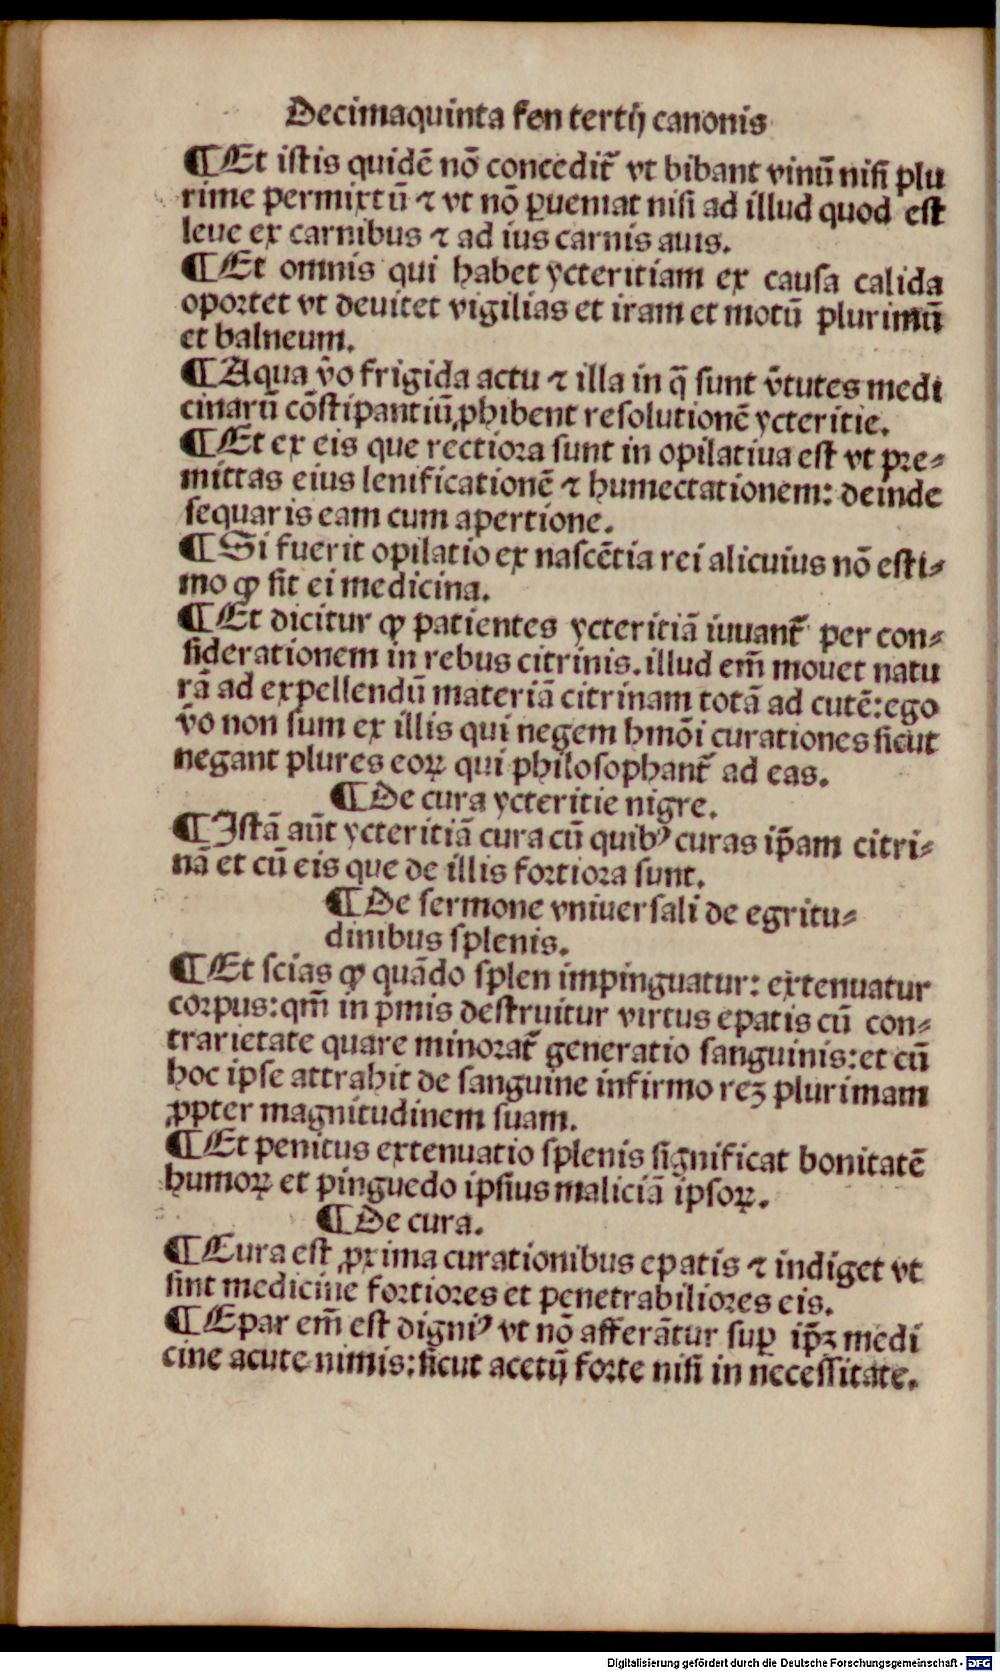 Decimaquinta fen tertij canonis
¶Et istis quidē nō concedit̄ vt bibant vinū nisi plu
rime permixtū ⁊ vt nō ꝑueniat nisi ad illud quod est
leue ex carnibus ⁊ ad ius carnis auis.
¶Et omnis qui habet ycteritiam ex causa calida
oportet vt deuitet vigilias et iram et motū plurimū
et balneum.
¶Aqua v̄o frigida actu ⁊ illa in q̄ sunt v̄tutes medi
cinarū cōstipantiū ꝓhibent resolutionē ycteritie.
¶Et ex eis que rectiora sunt in opilatiua est vt pre⸗
mittas eius lenificationē ⁊ humectationem: deinde
sequaris eam cum apertione.
¶Si fuerit opilatio ex nascētia rei alicuius nō esti⸗
mo ꝙ sit ei medicina.
¶Et dicitur ꝙ patientes ycteritiā iuuant̄ per con⸗
siderationem in rebus citrinis. illud em̄ mouet natu
rā ad expellendū materiā citrinam totā ad cutē: ego
v̄o non sum ex illis qui negem hmōi curationes sicut
negant plures eoꝝ qui philosophant̄ ad eas.
¶De cura ycteritie nigre.
¶Istā aūt ycteritiā cura cū quibꝰ curas ip̄am citri⸗
nā et cū eis que de illis fortiora sunt.
¶De sermone vniuersali de egritu⸗
dinibus splenis.
¶Et scias ꝙ quādo splen impinguatur: extenuatur
corpus: qm̄ in pmis destruitur virtus epatis cū con⸗
trarietate quare minorat̄ generatio sanguinis: et cū
hoc ipse attrahit de sanguine infirmo reꝫ plurimam
ꝓpter magnitudinem suam.
¶Et penitus extenuatio splenis significat bonitatē
humoꝝ et pinguedo ipsius maliciā ipsoꝝ.
¶De cura.
¶Cura est ꝓxima curationibus epatis ⁊ indiget vt
sint medicine fortiores et penetrabiliores eis.
¶Epar em̄ est digniꝰ vt nō afferātur suꝑ ip̄ꝫ medi
cine acute nimis: sicut acetū forte nisi in necessitate.
Digitalisierung gefördert durch die Deutsche Forschungsgemeinschaft - DFG